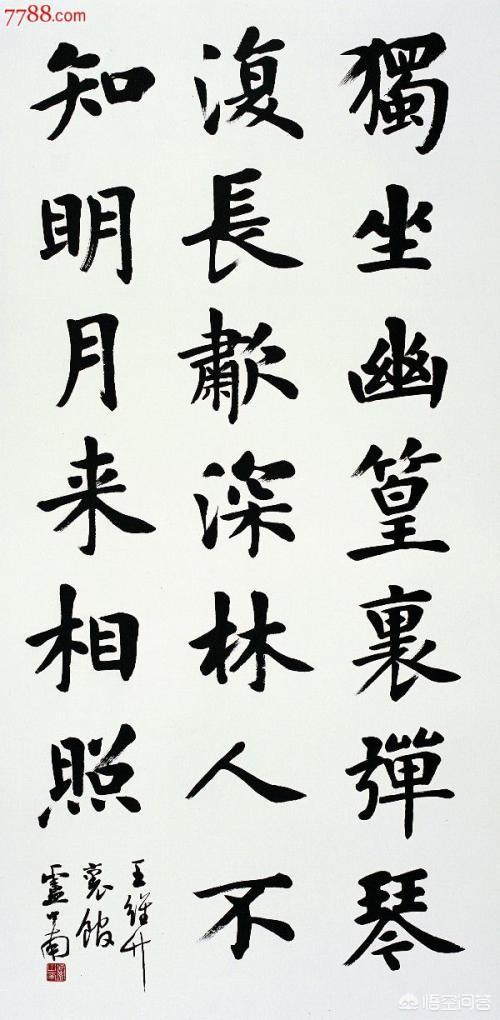 7788.com
獨坐幽篁裏彈琴
復長歗深林人不
知明月来相照
王維竹
裏館
盧中南
悟空问答